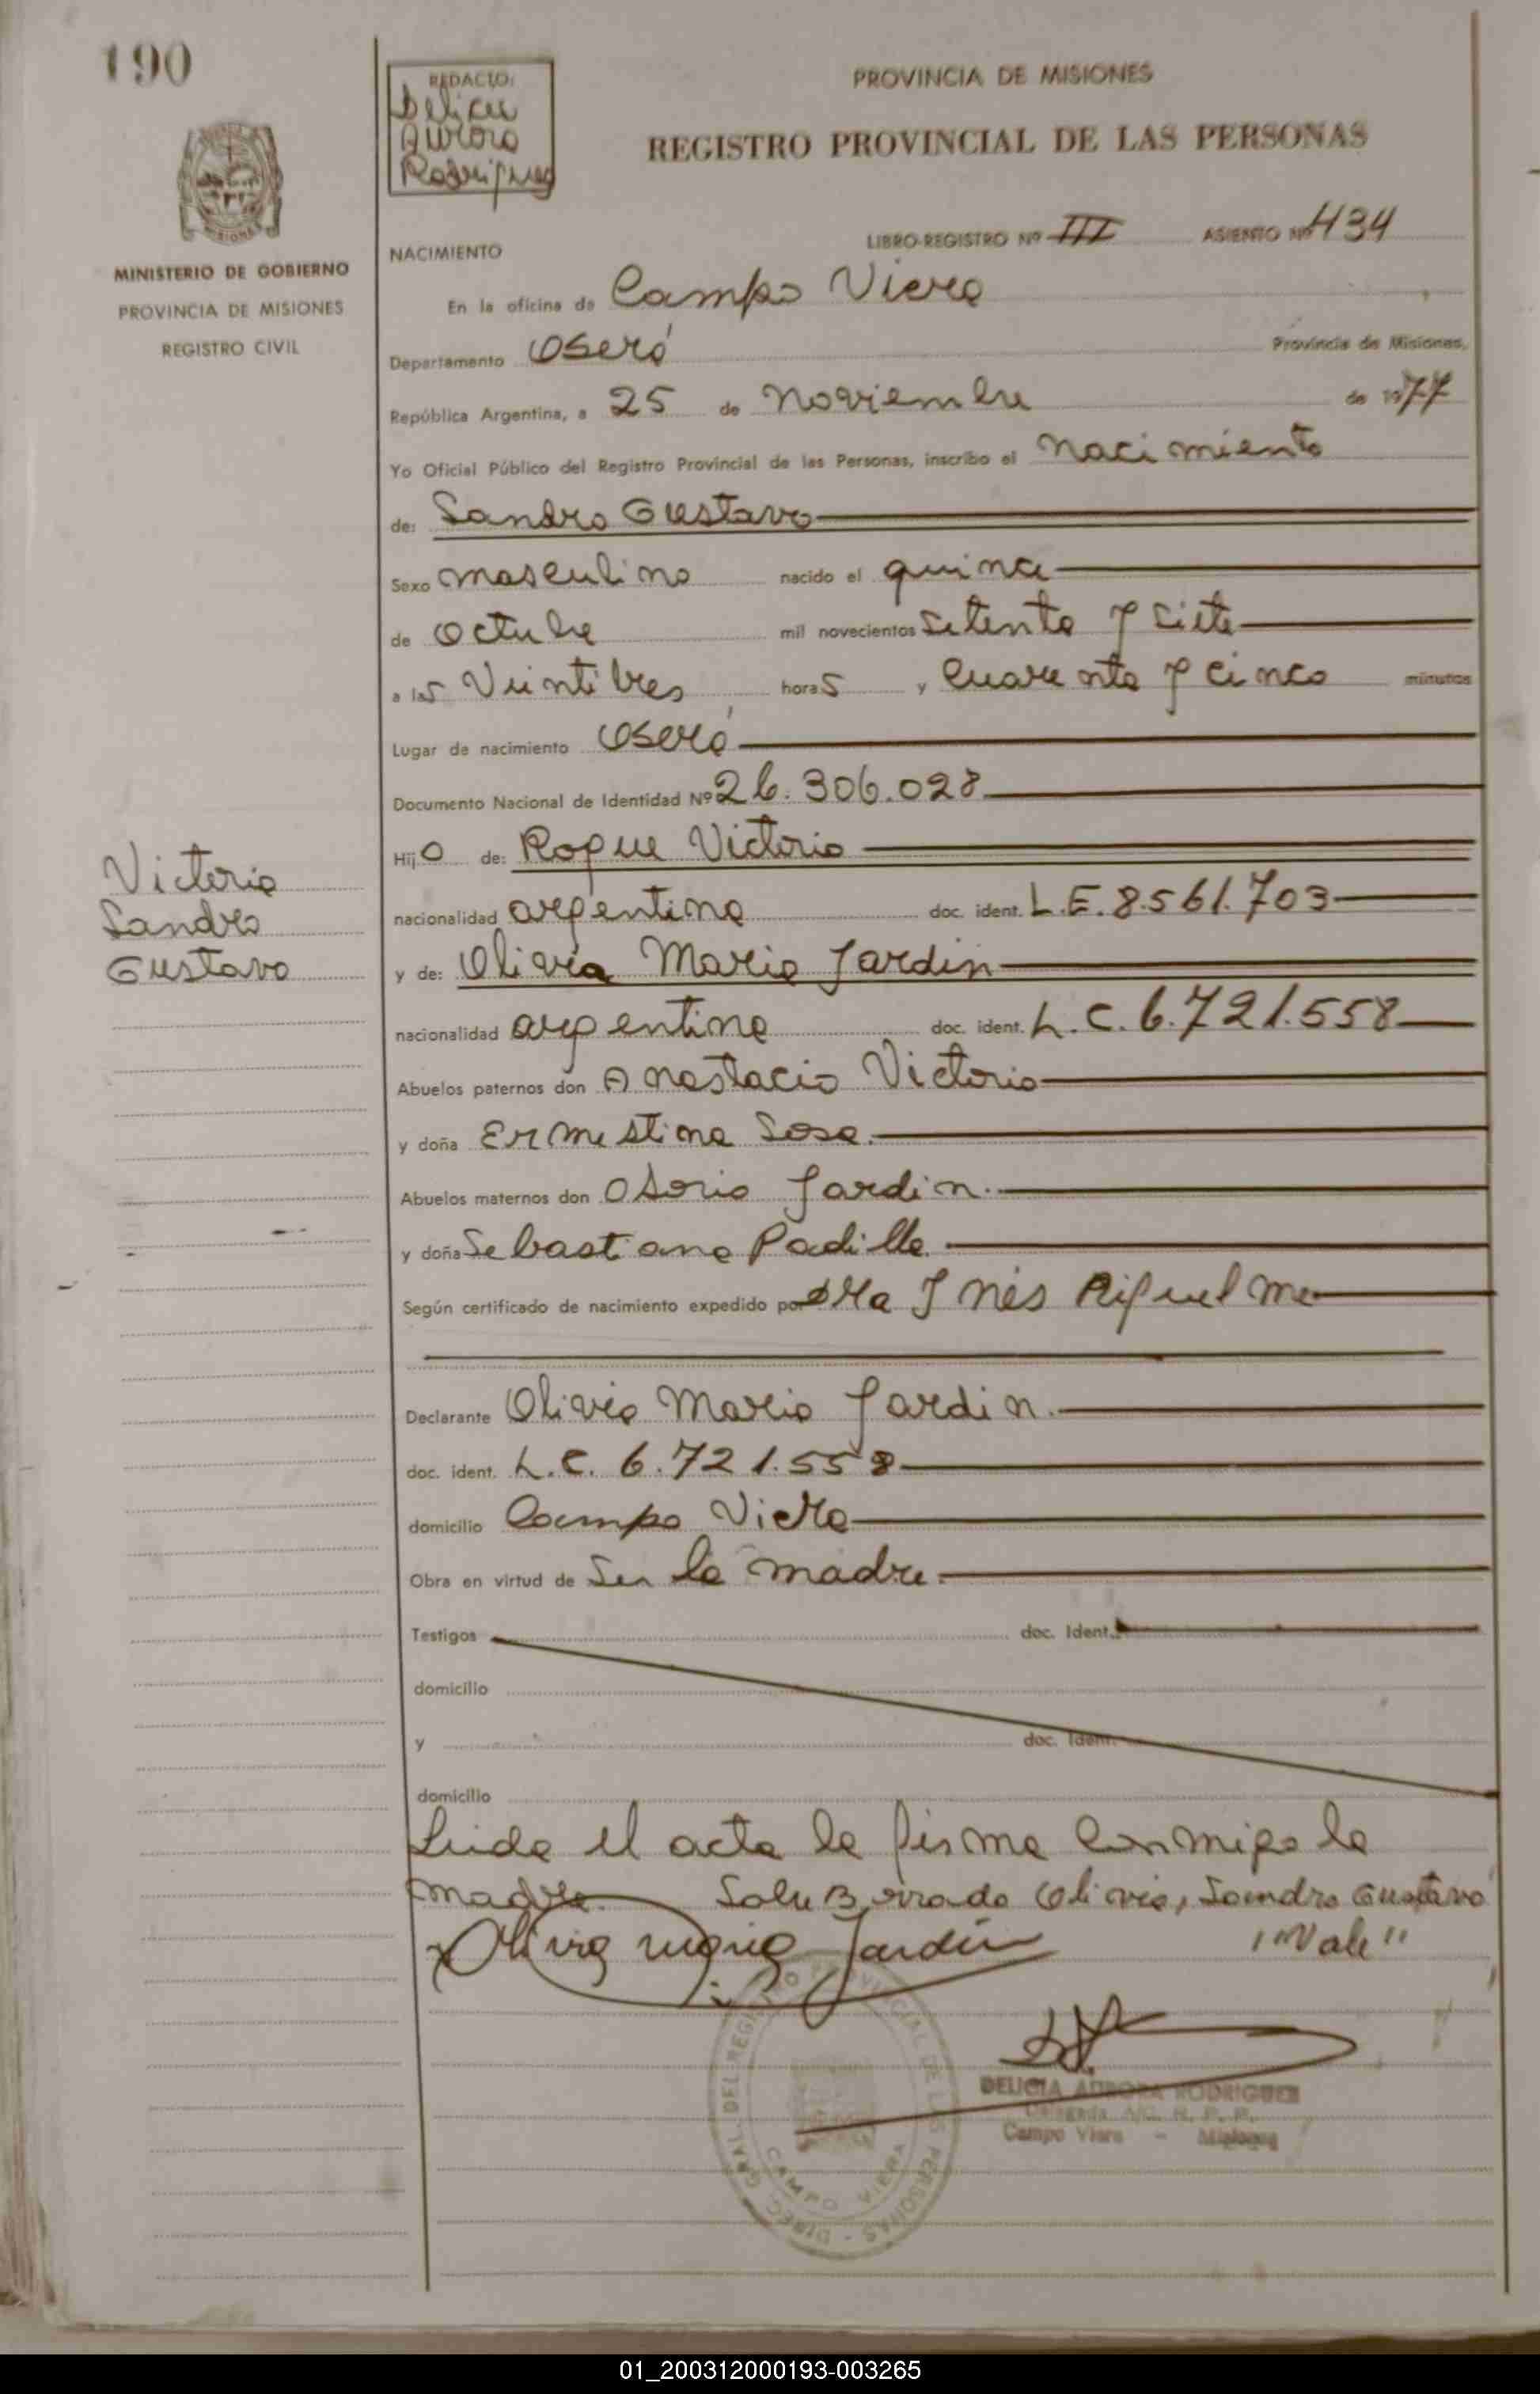 190
REDACTO:
Delicia
Aurora
Rodriguez
PROVINCIA DE MISIONES
REGISTRO PROVINCIAL DE LAS PERSONAS
MISIONES
MINISTERIO DE GOBIERNO
PROVINCIA DE MISIONES
REGISTRO CIVIL
NACIMIENTO
LIBRO-REGISTRO Nº III ASIENTO Nº 434
En la oficina de Campo Viera
Departamento Oberá Provincia de Misiones,
República Argentina, a 25 de Noviembre de 1977
Yo Oficial Público del Registro Provincial de las Personas, inscribo el Nacimiento
de: Sandro Gustavo
Sexo masculino nacido el quince
de Octubre mil novecientos Setenta y Siete
a las Veintitres horas y Cuarenta y Cinco minutos
Lugar de nacimiento Oberá
Documento Nacional de Identidad Nº 26.306.028
Hijo de: Roque Victorio
nacionalidad argentina doc. ident. L.E. 8.561.703
y de: Olivia Maria Jardin
nacionalidad argentina doc. ident. L.C. 6.721.558
Abuelos paternos don Anastacio Victorio
y doña Ermestina Sosa.
Abuelos maternos don Osorio Jardin.
y doña Sebastiana Padilla.
Según certificado de nacimiento expedido por Dra Inés Riquelme
Victorio
Sandro
Gustavo
Declarante Olivia Maria Jardin.
doc. ident. L.C. 6.721.558
domicilio Campo Viera
Obra en virtud de Ser la madre.
Testigos doc. Ident.
domicilio
y doc. Ident.
domicilio
Leida el acta la firma conmigo la
madre. Sobre Borrado Olivia, Sandro Gustavo
"Vale"
Olivia Maria Jardin
DIREC. GRAL. DEL REGISTRO PROVINCIAL DE LAS PERSONAS
CAMPO VIERA
DELICIA AURORA RODRIGUEZ
A/C. R. P. P.
Campo Viera - Misiones
01_200312000193-003265